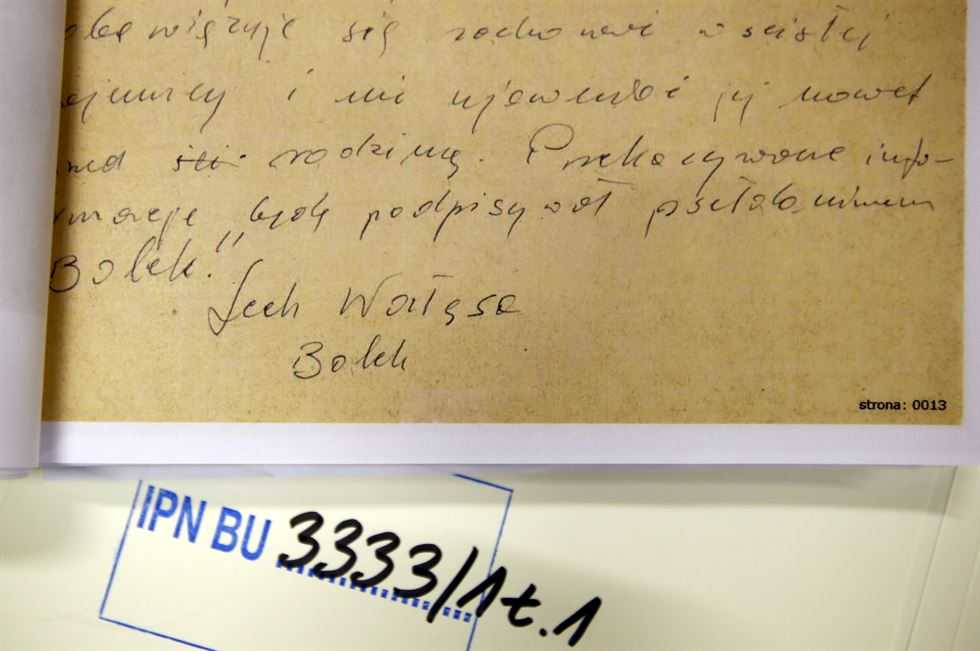 obowiązuje się zachować w ścisłej
ajemnicy i nie ujawniać jej nawet
rodziną. Przekazywane info-
rmacje będę podpisywał pseudonimem
Bolek."
Lech Wałęsa
Bolek
strona: 0013
IPN BU 3333/1 t.1